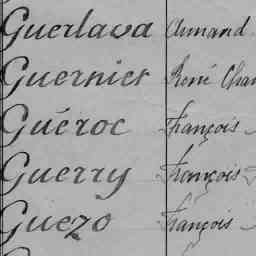 Guerlava Armand
Guernier René Char
Guéroc François
Guerry François
Guezo François